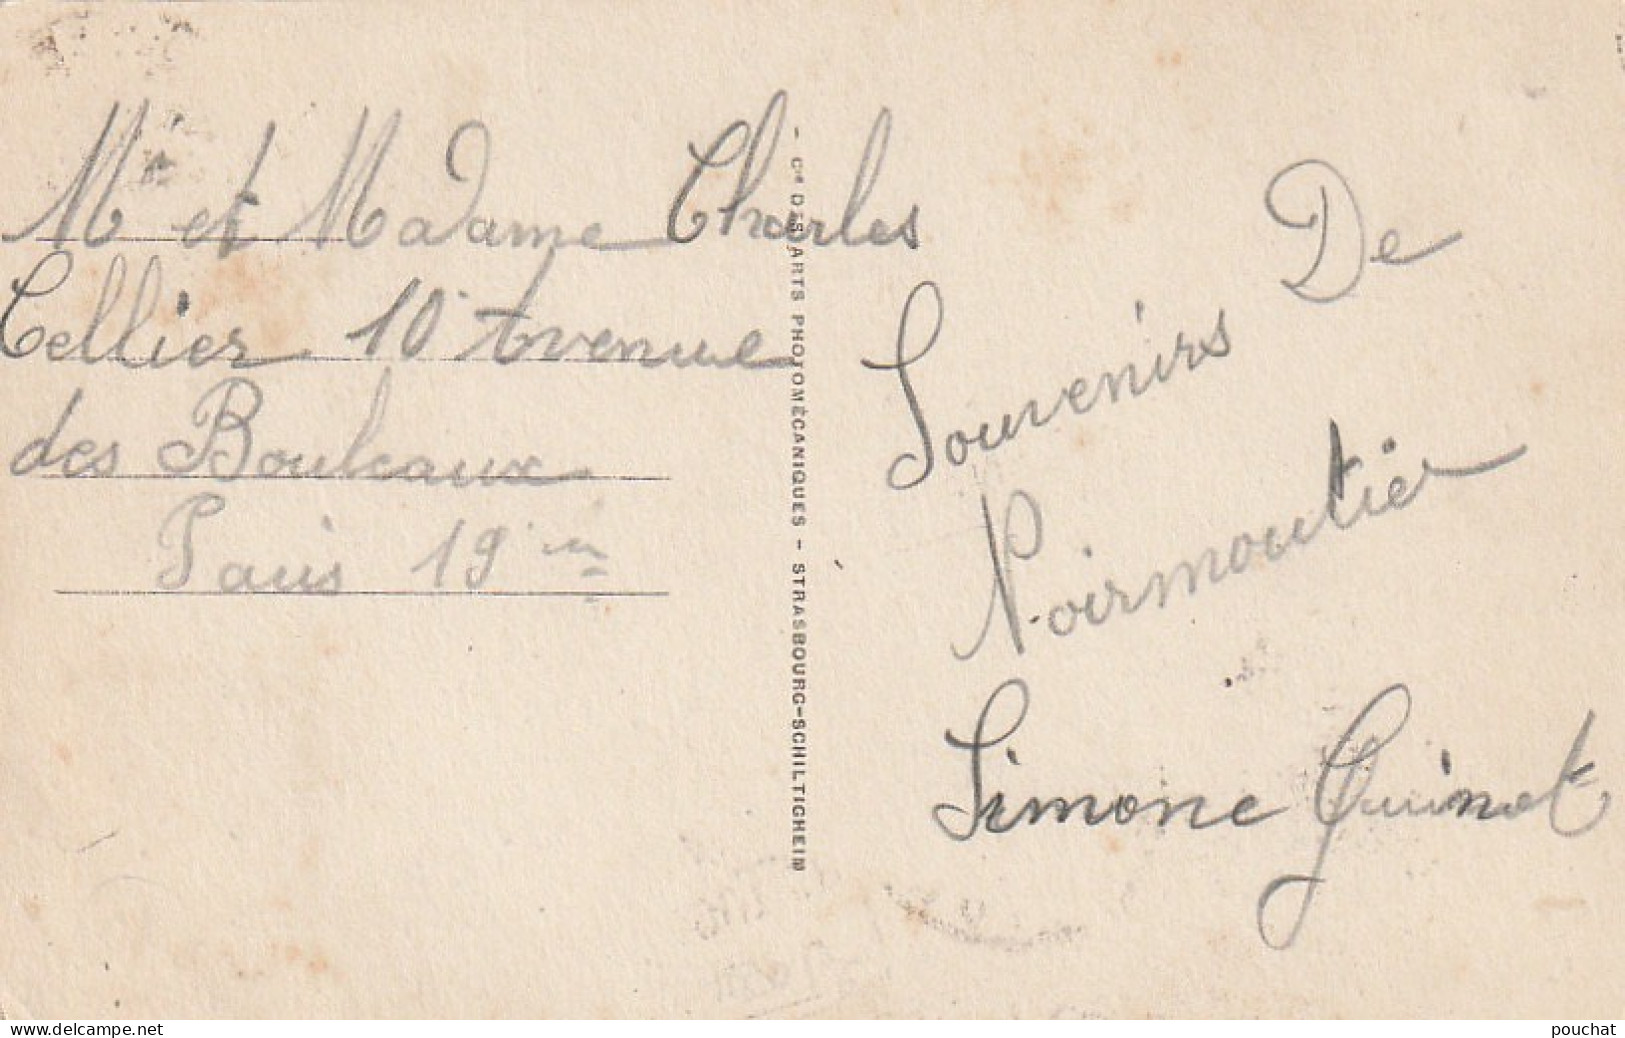 Mr et Madame Charles
Cellier 10 Avenue
des Bouleaux
Paris 19 ème
- Cie DES ARTS PHOTOMÉCANIQUES - STRASBOURG-SCHILTIGHEIM
Souvenirs De
Noirmoutier
Simone Guinot
www.delcampe.net
pouchat